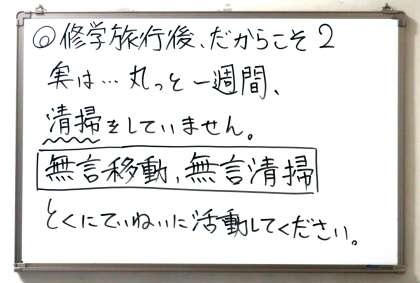 ◎修学旅行後、だからこそ2
実は…丸っと一週間、
清掃をしていません。
無言移動、無言清掃
とくにていねいに活動してください。